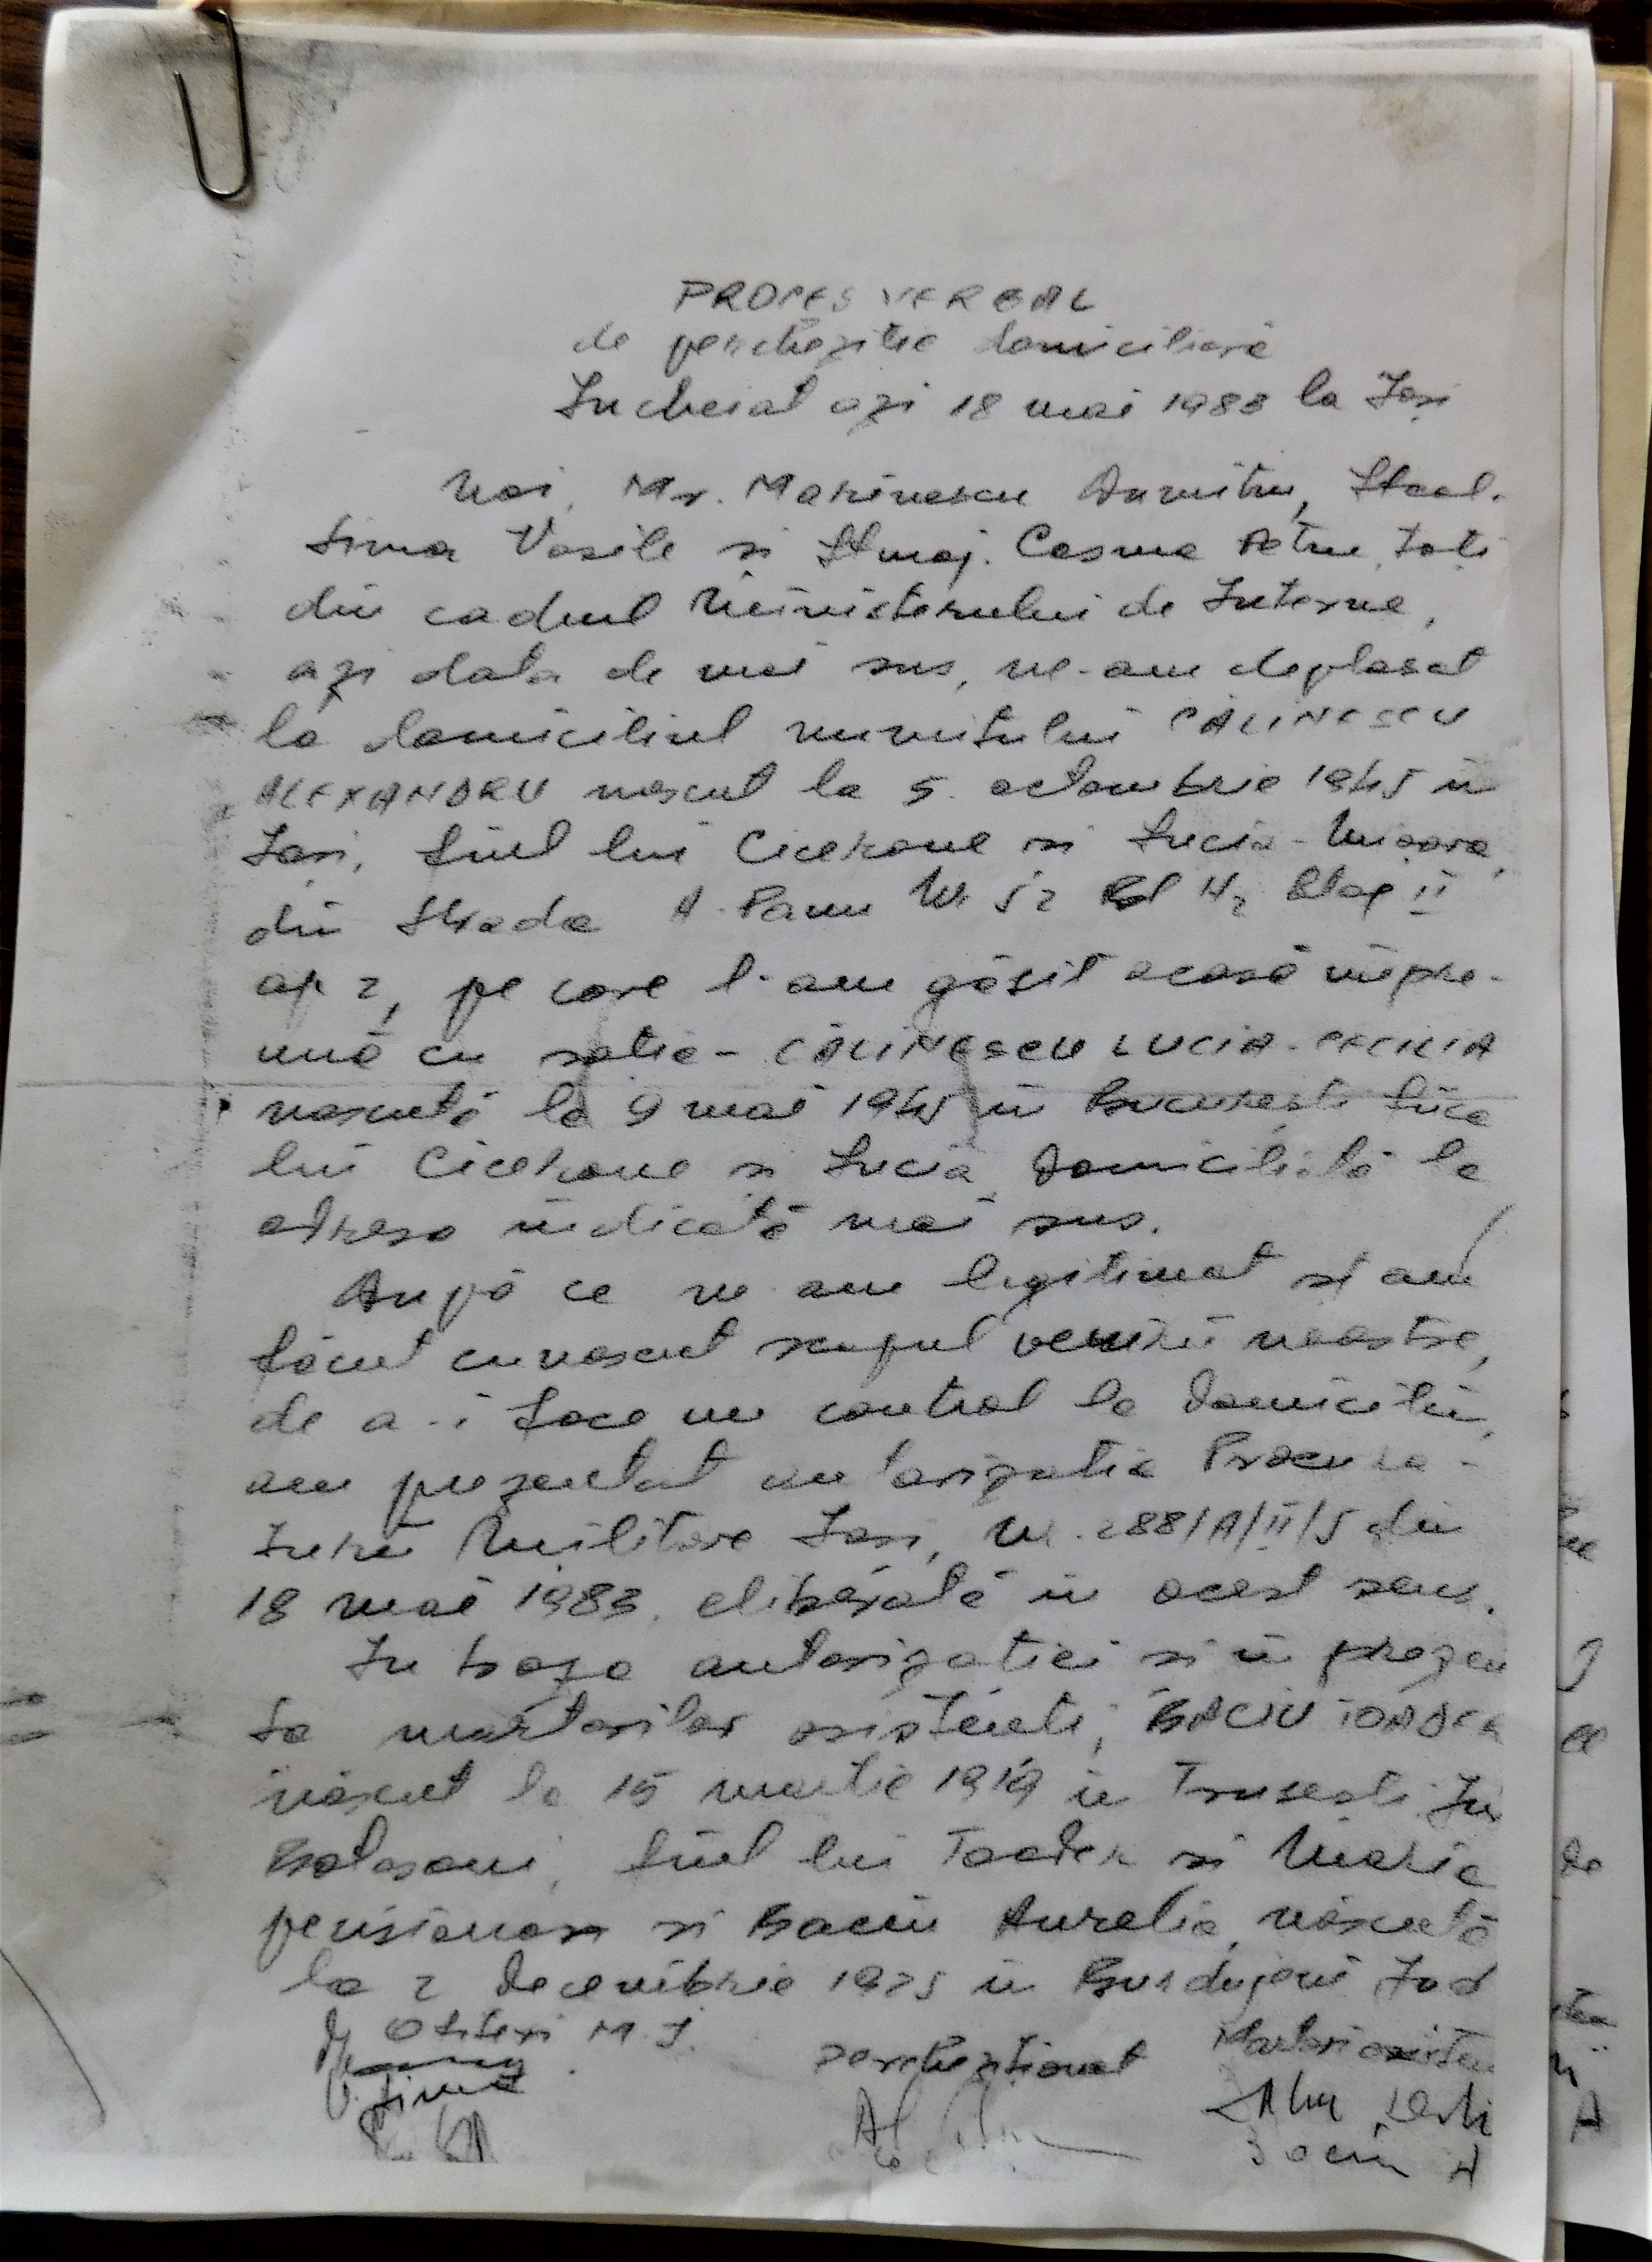 PROCES VERBAL
de perchezitie domiciliară
Incheiat azi 18 mai 1983 la Iași
Noi, Mr. Marinescu Dumitru, Lt.col.
Sima Vasile si Lt.maj. Cosma Petru, toti
din cadrul Ministerului de Interne,
azi data de mai sus, ne-am deplasat
la domiciliul numitului CĂLINESCU
ALEXANDRU nascut la 5. octombrie 1945 in
Iași, fiul lui Cicerone si Lucia-Mioara,
din Strada A. Panu Nr 52 Bl H2 Etaj II
ap 2, pe care l-am găsit acasă impre-
ună cu sotia - CĂLINESCU LUCIA-CECILIA
nascută la 9 mai 1945 in București fiica
lui Cicerone si Lucia, domiciliată la
adresa indicată mai sus.
După ce ne-am legitimat si am
făcut cunoscut scopul venirii noastre,
de a-i face un control la domiciliu,
am prezentat autorizatia Procura-
turii Militare Iasi, nr. 288/A/II/5 din
18 mai 1983. eliberată in acest sens.
In baza autorizatiei si in prezen
ta martorilor asistenti, BACIU TOADER
născut la 15 martie 1919 in Trusesti Jud
Botosani, fiul lui Toader si Maria
pensionar si Baciu Aurelia, născută
la 2 decembrie 1925 in Burdujeni Jud
Ofiteri M.I.
V. Sima
perchezitionat
Martori asistenti
Baciu A